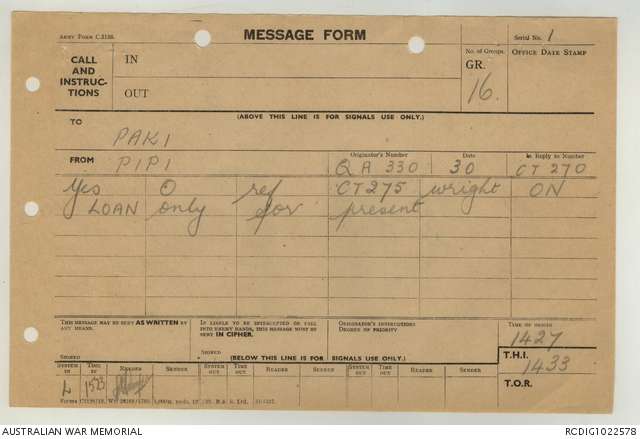 ARMY FORM C.2136.
MESSAGE FORM
Serial No. 1
CALL AND INSTRUCTIONS
IN
OUT
No. of Groups.
GR. 16.
OFFICE DATE STAMP
(ABOVE THIS LINE IS FOR SIGNALS USE ONLY.)
TO
PAKI
FROM PIPI
Originator's Number QA 330
Date 30
In Reply to Number CT 270
Yes O ref CT275 wright ON
LOAN only for present
THIS MESSAGE MAY BE SENT AS WRITTEN BY ANY MEANS.
IF LIABLE TO BE INTERCEPTED OR FALL INTO ENEMY HANDS, THIS MESSAGE MUST BE SENT IN CIPHER.
ORIGINATOR'S INSTRUCTIONS
DEGREE OF PRIORITY
TIME OF ORIGIN
1427
SIGNED
SIGNED
(BELOW THIS LINE IS FOR SIGNALS USE ONLY.)
T.H.I.
1433
SYSTEM IN TIME IN READER SENDER SYSTEM OUT TIME OUT READER SENDER SYSTEM OUT TIME OUT READER SENDER
T.O.R.
AUSTRALIAN WAR MEMORIAL
RCDIG1022578